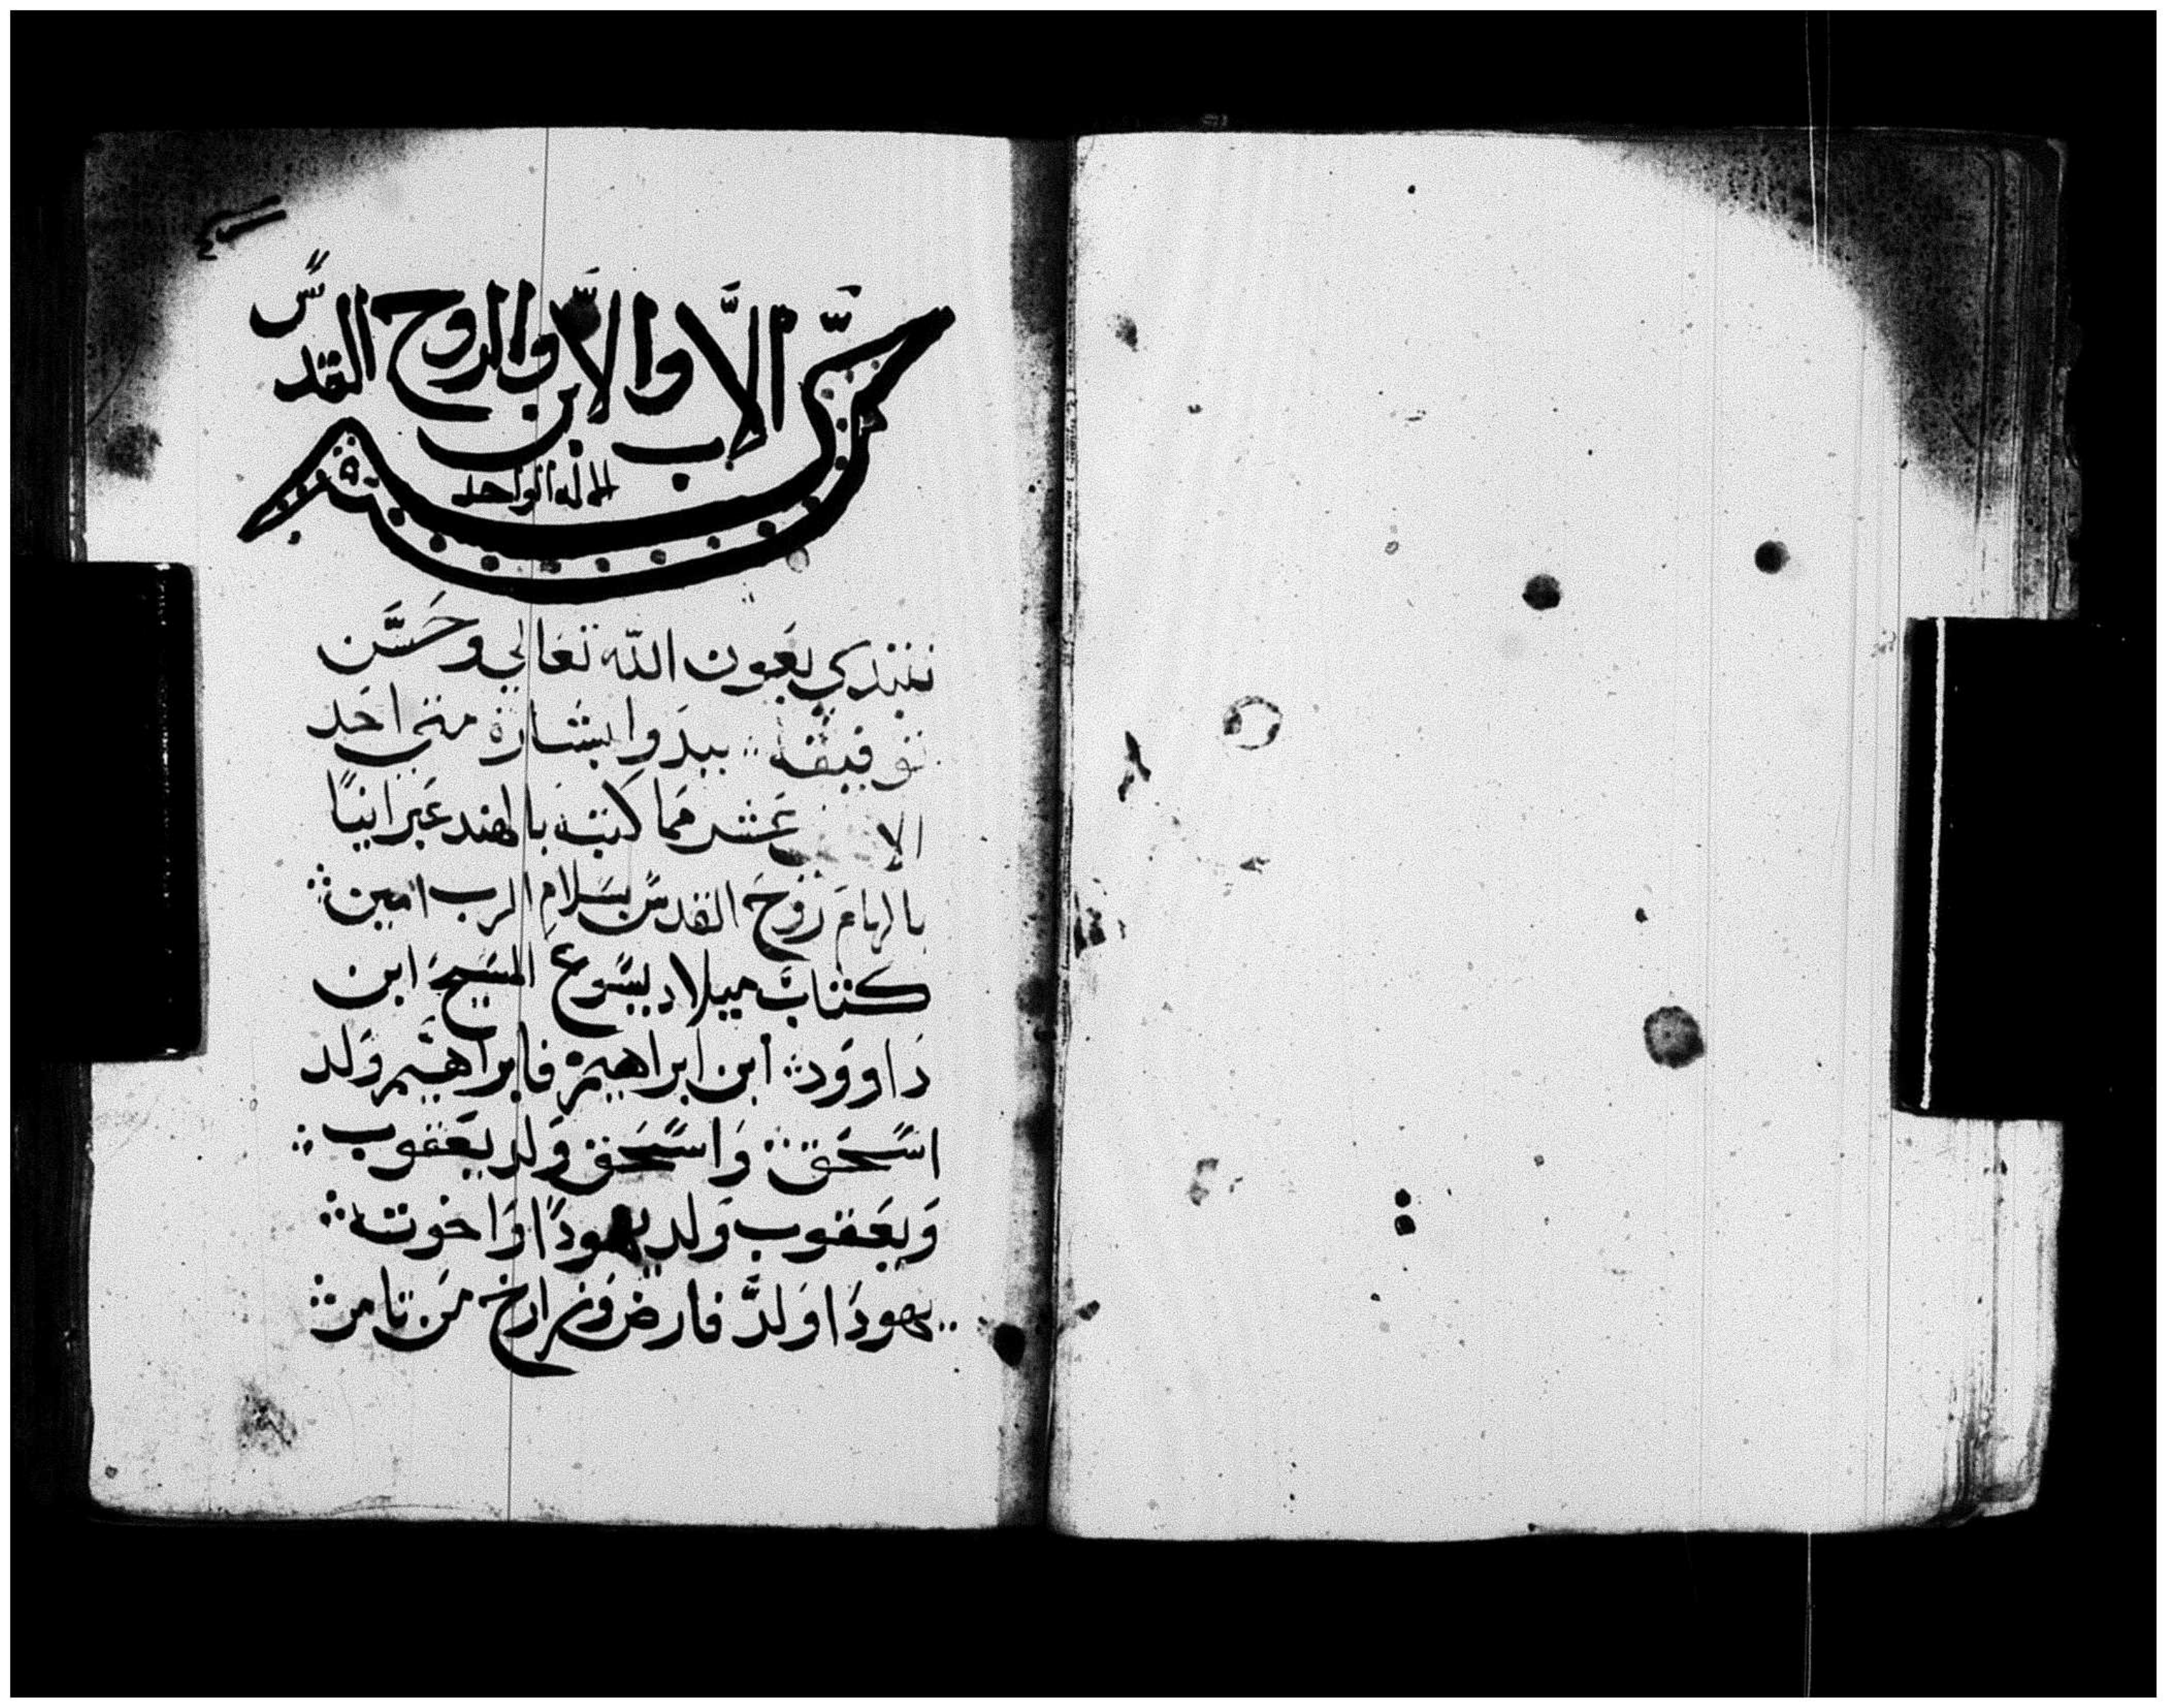 بسم الاب والابن والروح القدس
الاله الواحد
نبتدي بعون الله تعالي وحسن
توفيقه ببدوا بشارة متي احد
الا عشر مما كتبه بالهند عبرانيا
بالهام روح القدس بسلام الرب امين
كتاب ميلاد يسوع المسيح ابن
داوود ابن ابراهيم فابراهيم ولد
اسحق واسحق ولد يعقوب
ويعقوب ولد يهودا واخوته
يهودا ولد فارض وزارخ من تامر